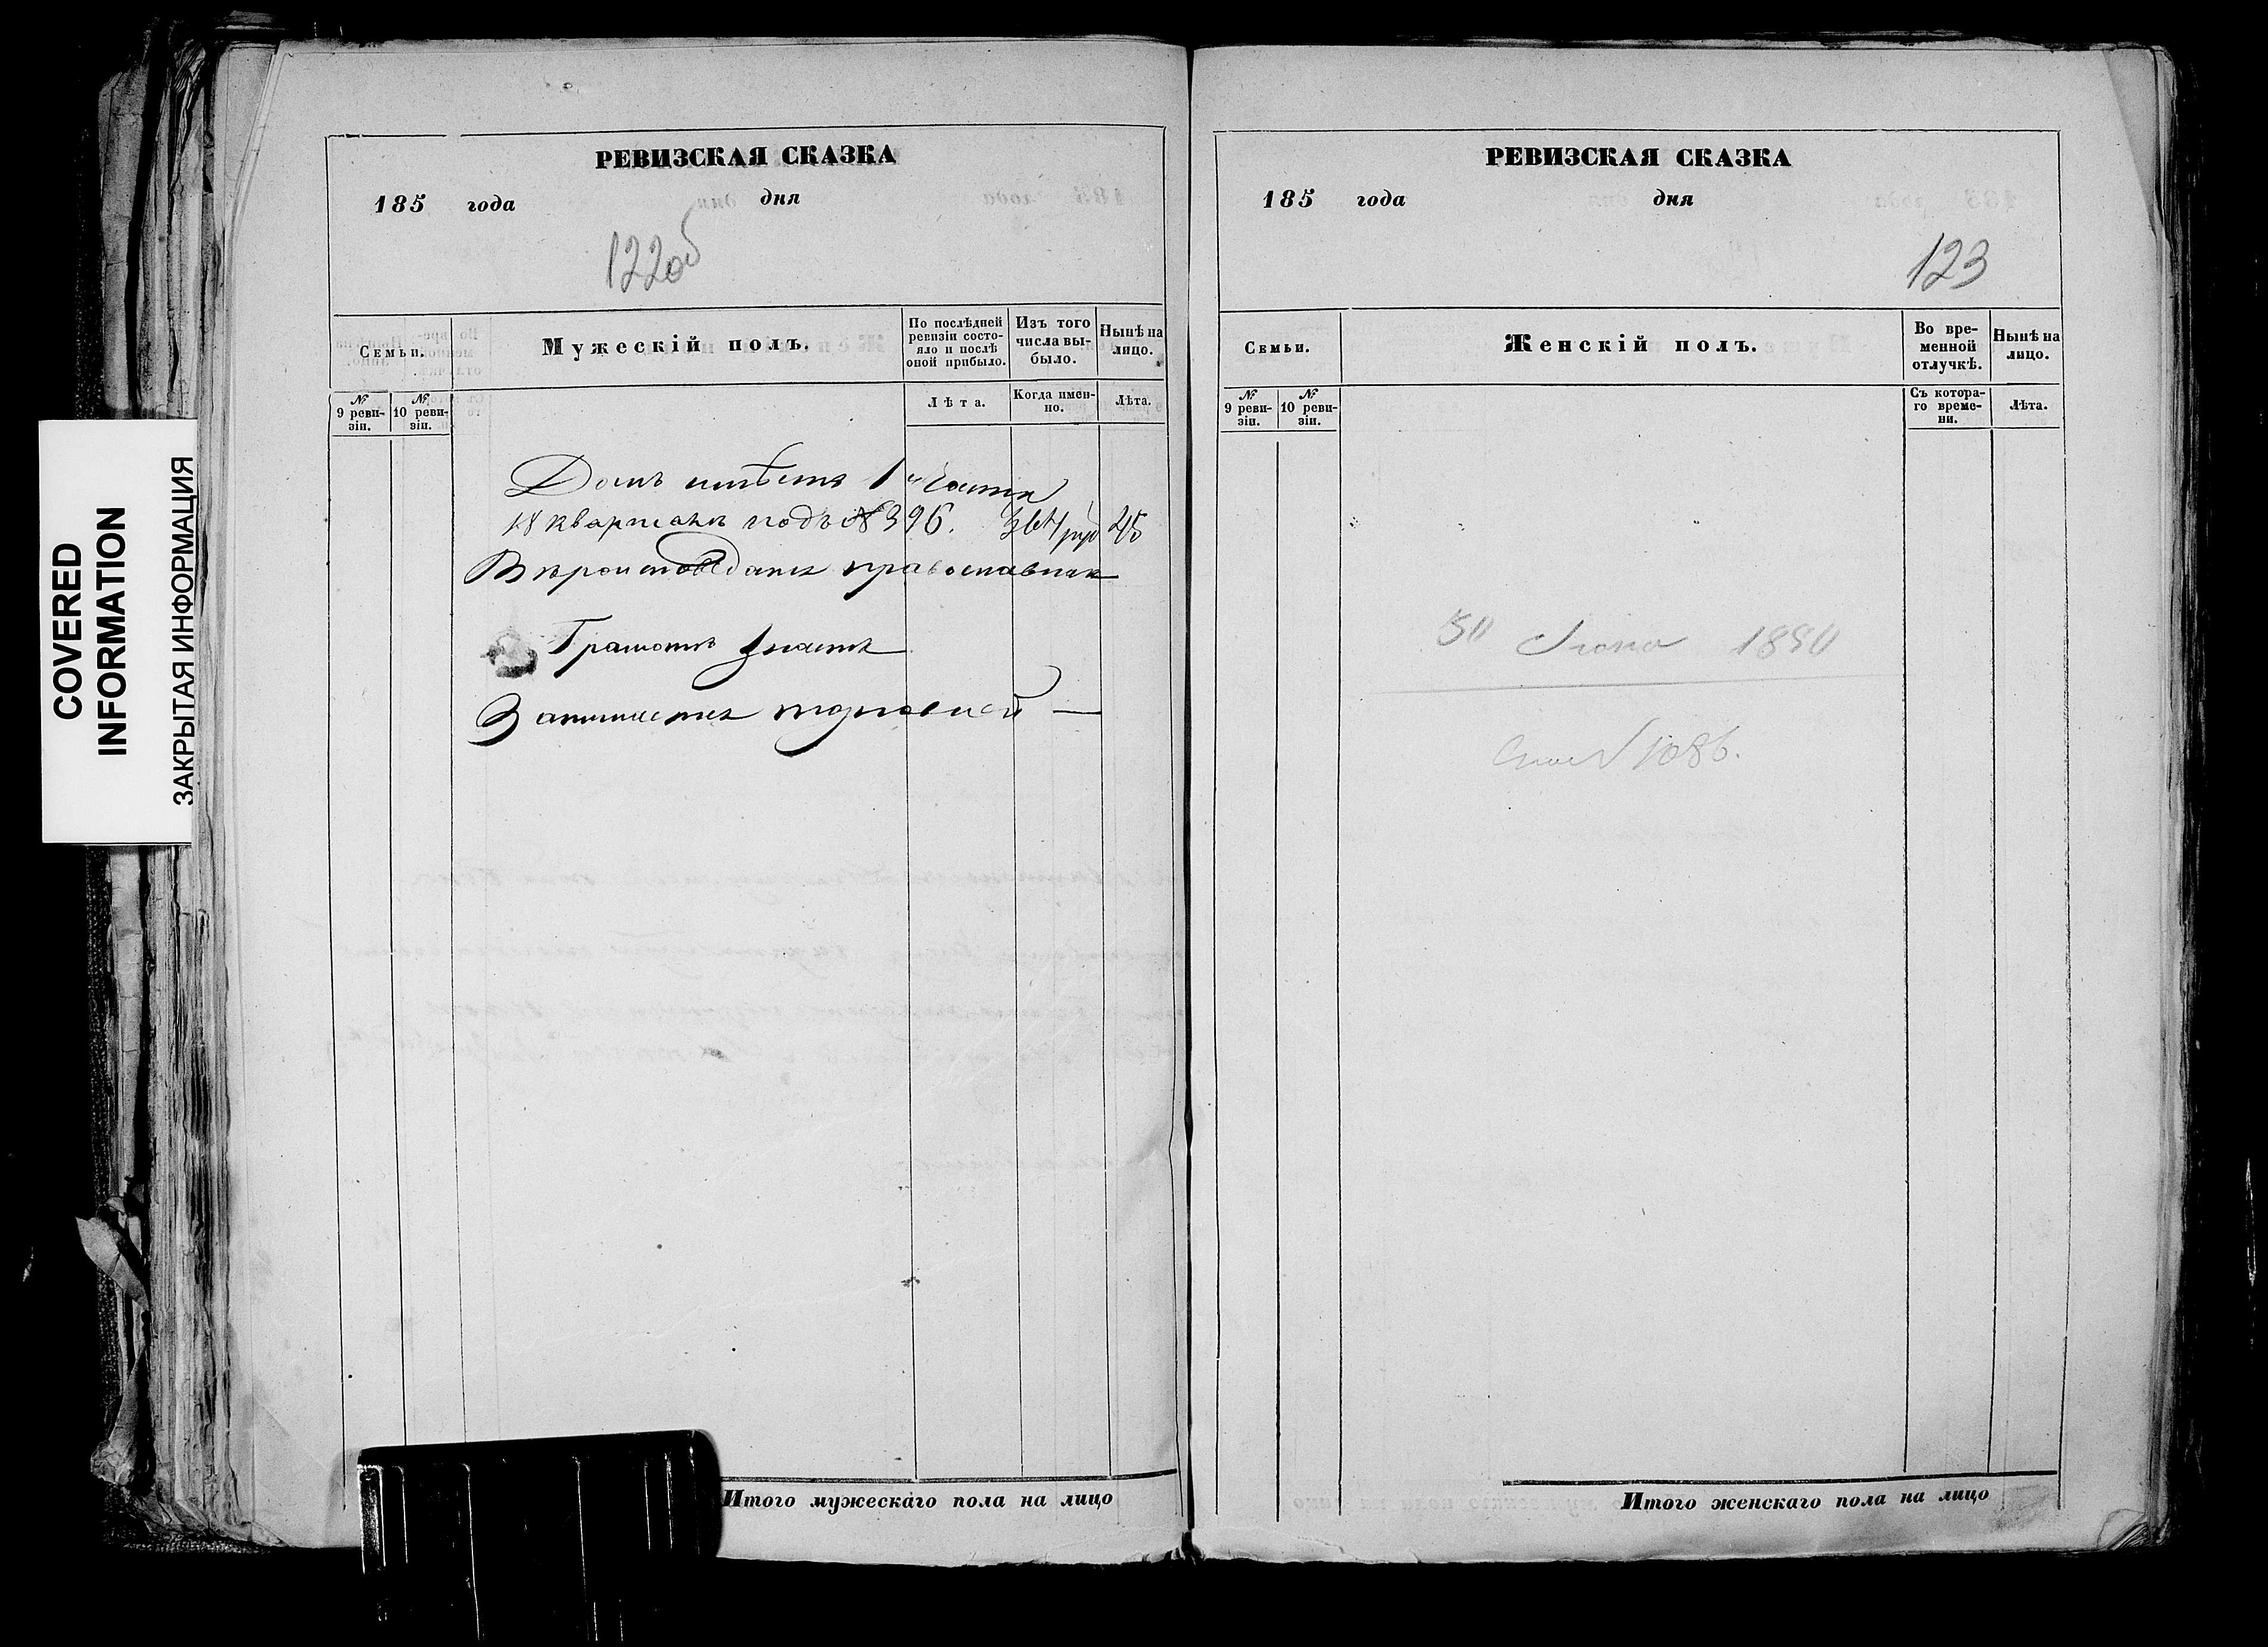 COVERED
INFORMATION
ЗАКРЫТАЯ ИНФОРМАЦИЯ
РЕВИЗСКАЯ СКАЗКА
185 года дня
122об
Семьи.
Мужескій полъ.
По послѣдней ревизіи состояло и послѣ оной прибыло.
Изъ того числа выбыло.
Нынѣ на лицо.
№ 9 ревизіи.
№ 10 ревизіи.
Лѣта.
Когда именно.
Лѣта.
Домъ имѣетъ 1й части
18 квартала подъ № 396.
Вѣроисповѣданія православнаго
Грамотѣ знаетъ
Занимается торговлей —
Итого мужескаго пола на лицо
РЕВИЗСКАЯ СКАЗКА
185 года дня
123
Семьи.
Женскій полъ.
Во временной отлучкѣ.
Нынѣ на лицо.
№ 9 ревизіи.
№ 10 ревизіи.
Съ котораго времени.
Лѣта.
Іюня
Итого женскаго пола на лицо